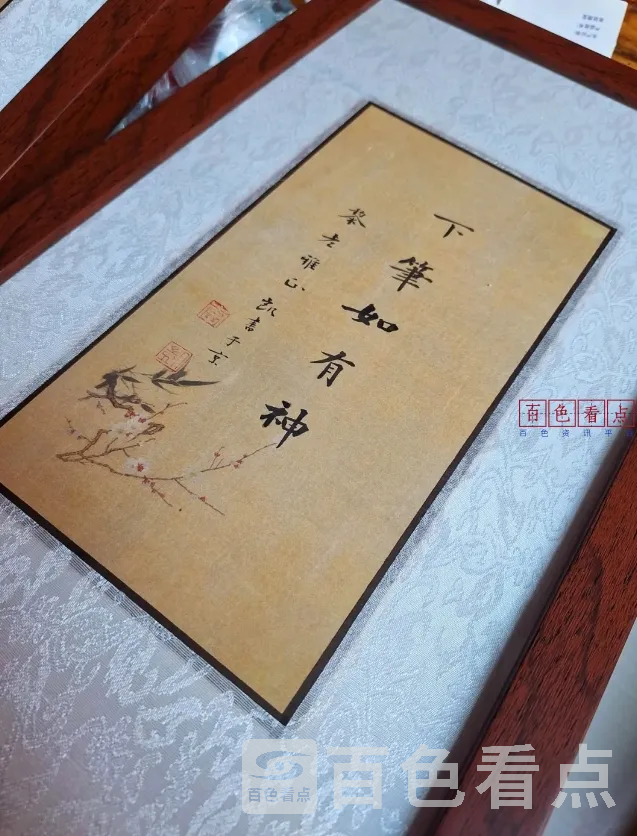 下筆如有神
黎老雅正 凱書于京
百色看点
百色资讯平
百色看点
百色看点